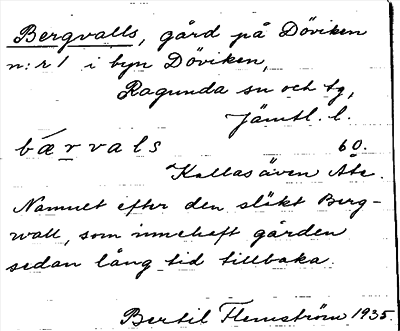 Bergvalls, gård på Döviken
n:r 1 i byn Döviken,
Ragunda sn och tg,
Jämtl. l.
bǽrvals 60.
Kallas även Åte.
Namnet efter den släkt Berg-
wall, som inneheft gården
sedan lång tid tillbaka.
Bertil Flemström 1935.